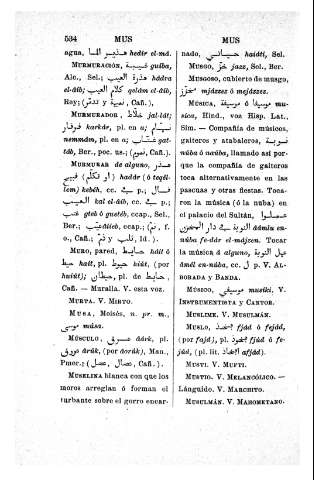 534 MUS
agua, هديـر المـا hedir el-má.
MURMURACIÓN, غيبـة guiba,
Alc., Sel.; هدرة العيب hádra
el-áib; كلام العيب quelám el-áib,
Boy; (نميمة y ندى, Cañ.).
MURMURADOR, خلاط jal-lát;
en a;
pl. en a;
téb, Ber., poc. us.; (نموم, Cañ.).
MURMURAR de alguno,
(او تكلم) haddr (ó
lem) kebéh, cc. في p.; قال
العيب kal el-áib, cc. في p.;
gteb ó gustéb, ccap., Sel.,
Ber.; ccap.; (نم, f.
o., Cañ.; ثلب y نم, Id.).
MURO, pared, حايط háit ó
hait, pl. حيوط hiút, (por
حيطان; pl. de حايط,
Cañ. — Muralla. V. esta voz.
MURTA. V. MIRTO.
MUSA, Moisés, n. pr. m.,
موسى músa.
MÚSCULO, عرق áárk, pl.
عروق árúk, (por dorúk), Man.,
Pmec.; (عضل, Cañ.).
MUSELINA blanca con que los
moros arreglan ó forman el
turbante sobre el gorro encar-
MUS
nado, حياتـي haidti, Sel.
MUSGO, خز jazz, Sel., Ber.
MUSGOSO, cubierto de musgo,
مخزز mjázzes ó mejázzes.
MÚSICA, موسيقة ó موسيقا mu-
sica, Hind., voz Hisp. Lat.,
Sim. — Compañía de músicos,
gaiteros y atabaleros, نوبـة
núba ó náuba, llamado así por-
que la compañía de gaiteros
toca alternativamente en las
pascuas y otras fiestas. Toca-
ron la música (ó la nuba) en
el palacio del Sultán, عملـوا
النوبة في دار المخزن áámlu en-
núba fe-ddr el-majzen. Tocar
la música á alguno, عمل النوبة
ámél en-núba, cc. ل p. V. AL-
BORADA y BANDA.
MÚSICO, موسيقي musíki. V.
INSTRUMENTISTA y CANTOR.
MUSLIME. V. MUSULMÁN.
MUSLO, فخذ fjád ó fejád,
(por fajd), pl. فخوذ fjúd ó fe-
júd, (pl. lit. افخاذ afjád).
MUSTI. V. MUFTI.
MUSTIO. V. MELANCÓLICO. —
Lánguido. V. MARCHITO.
MUSULMÁN. V. MAHOMETANO.